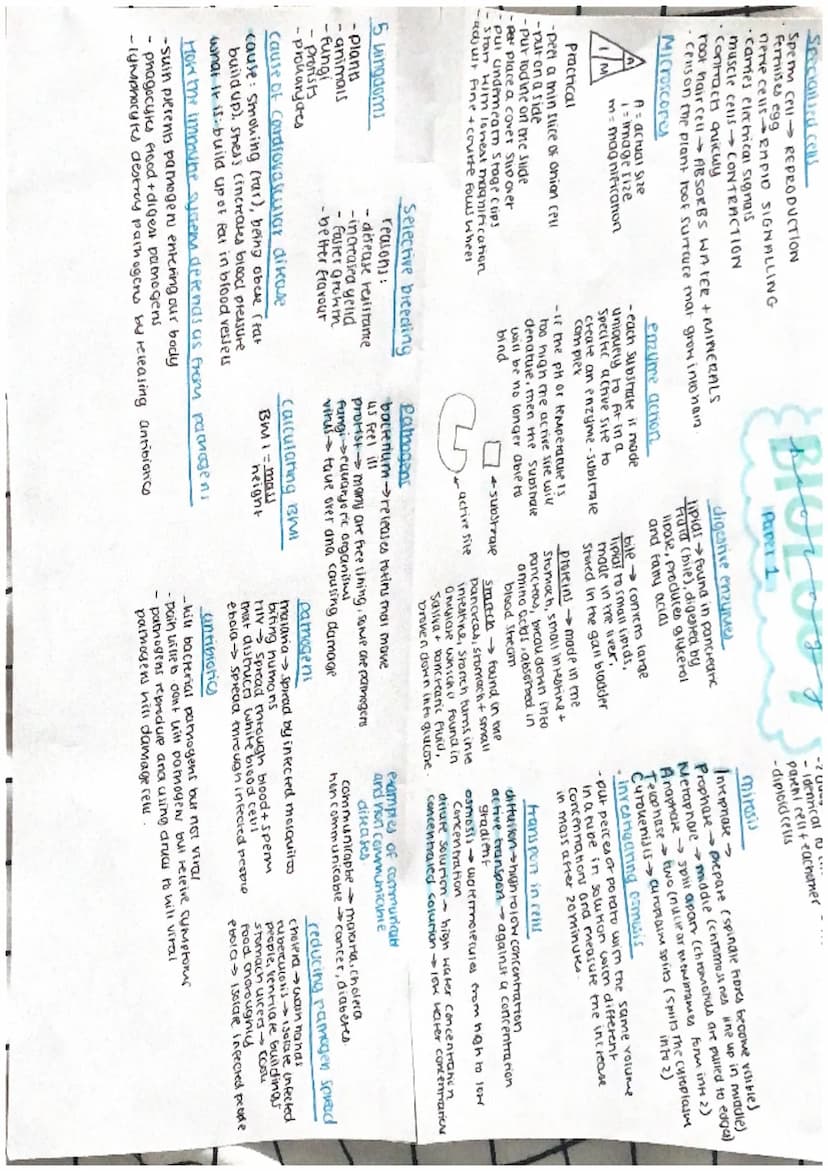 BIOLOGY
paper 1
specialised cells
Sperm cell → REPRODUCTION
fertilises egg
nerve cells → RAPID SIGNALLING
· carries electrical signals
muscle cells → CONTRACTION
· contracts quickly
root hair cell → ABSORBS WATER + MINERALS
· cells on the plant root surface that grow into hair
Microscopes
A
I M
A = actual size
I = image size
M = magnification
Practical
- peel a thin slice of onion cell
- put on a slide
- put iodine on the slide
- place a cover slip over
- put underneath stage clips
- start with lowest magnification
- adjust fine + course focus wheel
enzyme action
- each substrate is made
uniquely to fit in a
specific active site to
create an enzyme-substrate
complex
- if the ph or temperature is
too high the active site will
denature, then the substrate
will be no longer able to
bind
← substrate
← active site
digestive enzymes
lipids → found in pancreatic
fluid (bile), digested by
lipase, produces glycerol
and fatty acids
bile → converts large
lipids to small lipids,
made in the liver,
stored in the gall bladder
proteins → made in the
stomach, small intestine +
pancreas, break down into
amino acids, absorbed in
blood stream
starch → found in the
pancreas, stomach + small
intestine, starch turns into
saliva + pancreatic fluid,
broken down into glucose.
- identical to
parent cell + eachother
- diploid cells
mitosis
Interphase →
Prophase → prepare (spindle fibres become visible)
Metaphase → middle (chromosomes line up in middle)
Anaphase → split apart (chromatids are pulled to edges)
Telophase → two (nuclear membranes form into 2)
Cytokinesis → cytoplasm splits (splits the cytoplasm
into 2)
· investigating osmosis
- put peices of potato with the same volume
in a tube in solution with different
concentrations and measure the increase
in mass after 20 minutes.
transport in cells
diffusion → high to low concentration
active transport → against a concentration
gradient
osmosis → water molecules from high to low
concentration
dilute solution → high water concentration
concentrated solution → low water concentration
5 kingdoms
- plants
- animals
- fungi
- protists
- prokaryotes
selective breeding
reasons:
- disease resistance
- increased yeild
- faster growth
- better flavour
Pathogens
bacterium → releases toxins that make
us feel ill
protist → many are free living, some are pathogens
fungi → eukaryotic organisms
virus → take over dna, causing damage
examples of communicable
and non communicable
diseases
communicable → malaria, cholera
non communicable → cancer, diabetes
cause of cardiovascular disease
cause: smoking (tar), being obese (fat
build up), stress (increases blood pressure
what it is: build up of fat in blood vessels
calculating BMI
BMI = mass
height
pathogens
malaria → spread by infected mosquitos
biting humans
HIV → spread through blood + sperm
that distructs white blood cells
ebola → spread through infected people
reducing pathogen spread
cholera → wash hands
tuberculosis → isolate infected
people, ventilate buildings
stomach ulcers → cook
food thoroughly
ebola → isolate infected people
How the immune system defends us from pathogens
- skin prevents pathogens entering our body
- phagocytes flood + digest pathogens
- lymphocytes destroy pathogens by releasing antibiotics
antibiotics
- kill bacterial pathogens but not viral
- pain killers cant kill pathogens but releive symptoms
- pathogens reproduce and using drugs to kill viral
pathogens will damage cells.